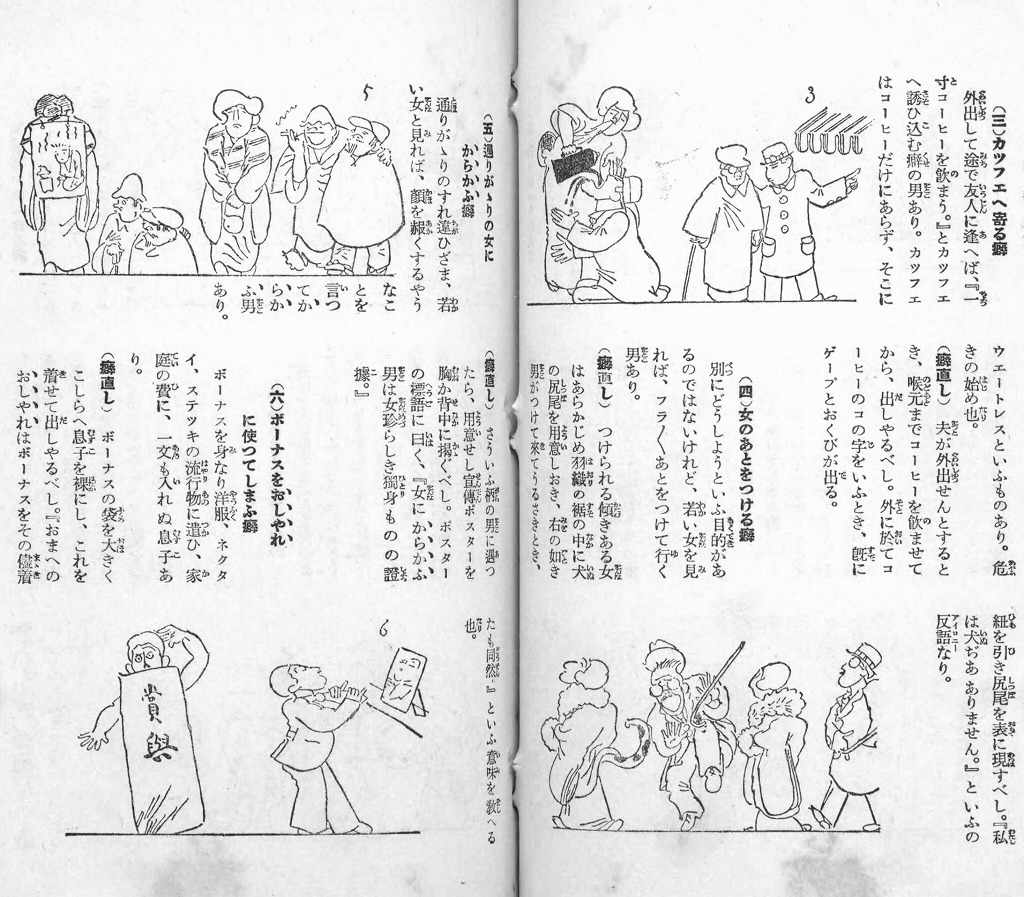 （三）カツフエへ寄る癖
外出して途で友人に逢へば、『一
寸コーヒーを飮まう。』とカツフエ
へ誘ひ込む癖の男あり。カツフエ
はコーヒーだけにあらず、そこに
3
ウエートレスといふものあり。危
きの始め也。
（癖直し）　夫が外出せんとすると
き、喉元までコーヒーを飮ませて
から、出しやるべし。外に於てコ
ーヒーのコの字をいふとき、既に
ゲープとおくびが出る。
（四）女のあとをつける癖
別にどうしようといふ目的があ
るのではないけれど、若い女を見
れば、フラ〳〵あとをつけて行く
男あり。
（癖直し）　つけられる傾きある女
はあらかじめ羽織の裾の中に犬
の尻尾を用意しおき、右の如き
男がつけて來てうるさきとき、
紐を引き尻尾を表に現すべし。『私
は犬ぢあ ありません。』といふの
反語なり。
（五）通りがゝりの女に
からかふ癖
通りがゝりのすれ違ひざま、若
い女と見れば、顔を赧くするやう
なこ
とを
言つ
てか
らか
ふ男
あり。
5
（癖直し）　さういふ柄の男に遇つ
たら、用意せし宣傳ポスターを
胸か背中に揭ぐべし。ポスター
の標語に曰く、『女にからかふ
男は女珍らしき獨身ものの證
據。』
（六）ボーナスをおしやれ
に使つてしまふ癖
ボーナスを身なり洋服、ネクタ
イ、ステツキの流行物に遣ひ、家
庭の費に、一文も入れぬ息子あ
り。
（癖直し）　ボーナスの袋を大きく
こしらへ息子を裸にし、これを
着せて出しやるべし。『おまへの
おしやれはボーナスをその儘着
たも同然。』といふ意味を敎へる
也。
6
賞與